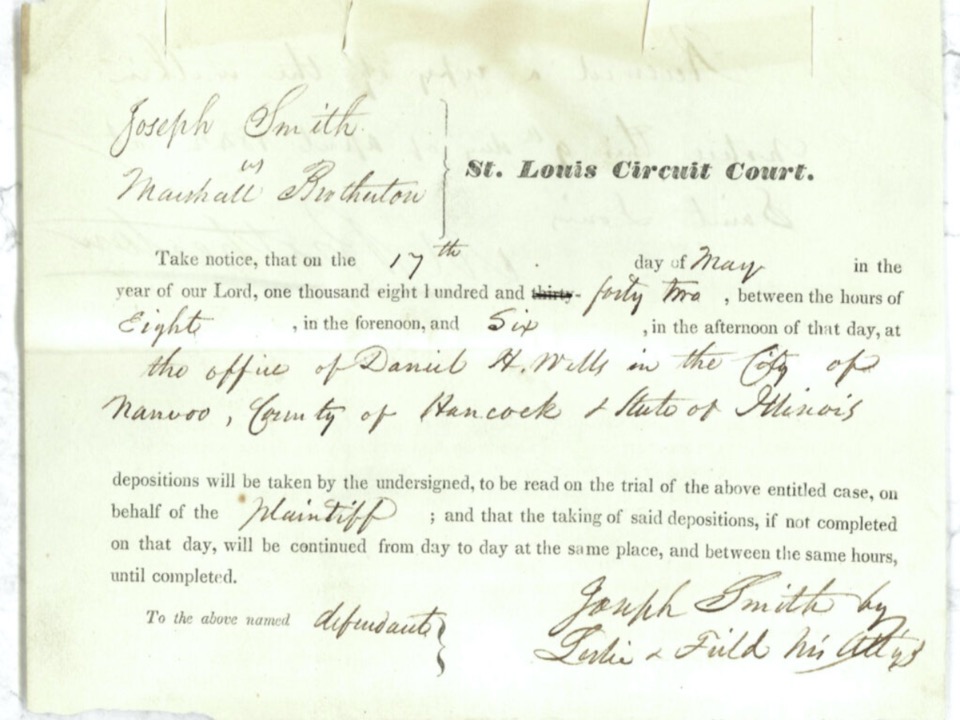 Joseph Smith
vs
Marshall Brotherton
St. Louis Circuit Court.
Take notice, that on the 17th day of May in the
year of our Lord, one thousand eight hundred and thirty- forty two, between the hours of
Eight, in the forenoon, and Six, in the afternoon of that day, at
the office of Daniel H. Wells in the City of
Nauvoo, County of Hancock & State of Illinois
depositions will be taken by the undersigned, to be read on the trial of the above entitled case, on
behalf of the plaintiff; and that the taking of said depositions, if not completed
on that day, will be continued from day to day at the same place, and between the same hours,
until completed.
To the above named defendant
Joseph Smith by
Leslie & Field his Attys